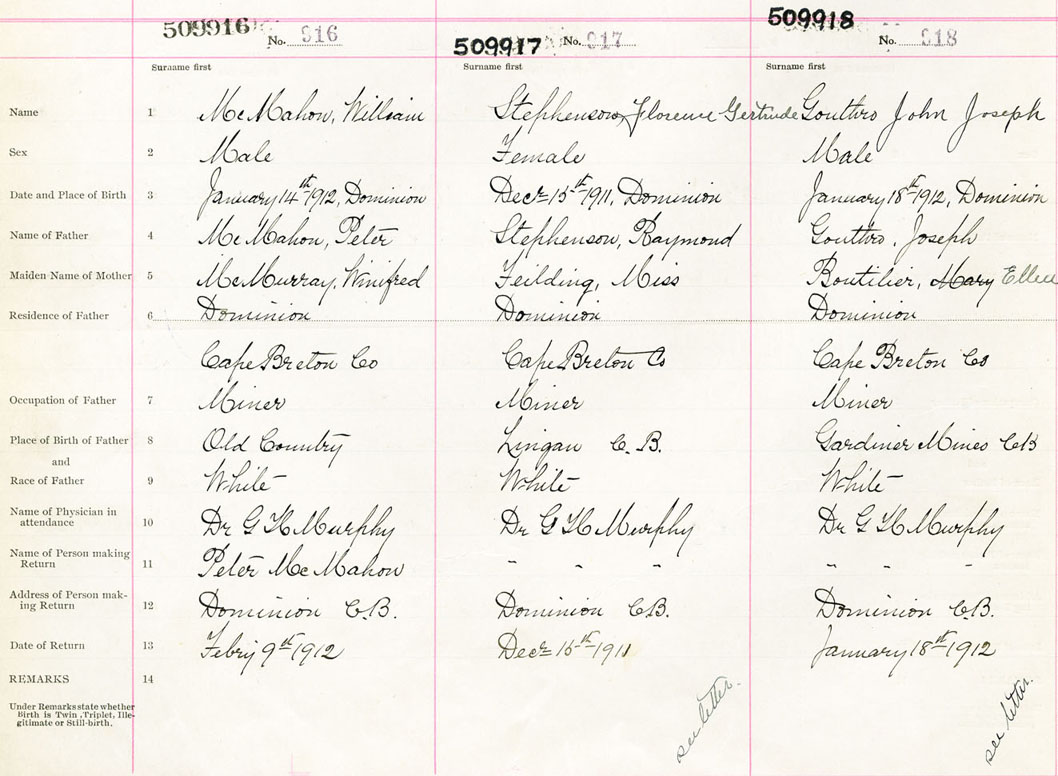 509916 No. 916
509917 No. 917
509918 No. 918
Surname first Surname first Surname first
Name 1 McMahon, William Stephenson, Florence Gertrude Gouthro John Joseph
Sex 2 Male Female Male
Date and Place of Birth 3 January 14th 1912, Dominion Decr 15th 1911, Dominion January 18th 1912, Dominion
Name of Father 4 McMahon, Peter Stephenson, Raymond Gouthro, Joseph
Maiden Name of Mother 5 McMurray, Winifred Feilding, Miss Boutilier, Mary Ellen
Residence of Father 6 Dominion Dominion Dominion
Cape Breton Co Cape Breton Co Cape Breton Co
Occupation of Father 7 Miner Miner Miner
Place of Birth of Father 8 Old Country Lingan C.B. Gardiner Mines CB
and
Race of Father 9 White White White
Name of Physician in
attendance 10 Dr G H Murphy Dr G H Murphy Dr G H Murphy
Name of Person making
Return 11 Peter McMahon " " " " " "
Address of Person mak-
ing Return 12 Dominion C.B. Dominion C.B. Dominion C.B.
Date of Return 13 Febry 9th 1912 Decr 15th 1911 January 18th 1912
REMARKS 14
Under Remarks state whether
Birth is Twin, Triplet, Ille-
gitimate or Still-birth.
see letter.
see letter.